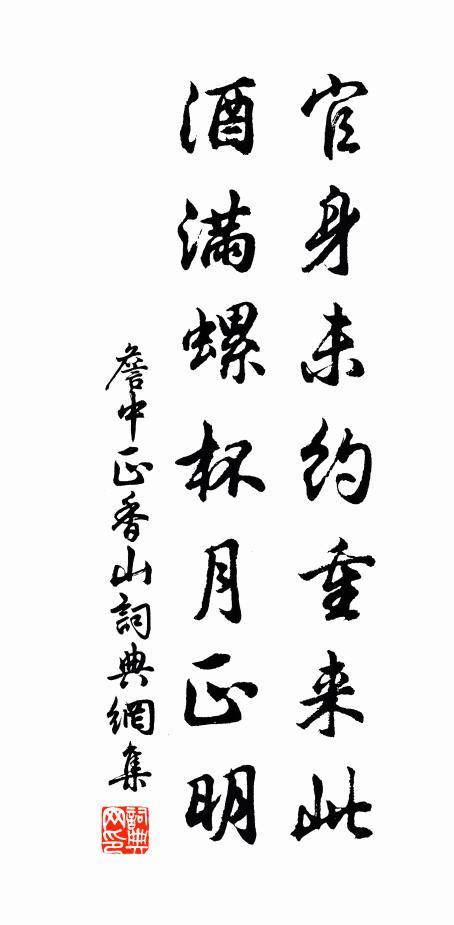 官身未約重来此
酒满螺杯月正明
詹中正香山詞典網集
詞典網印